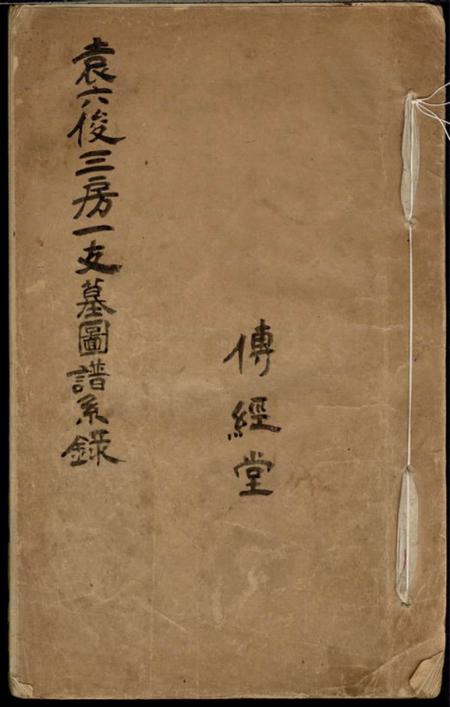 袁六俊三房一支墓圖譜系錄
傳經堂